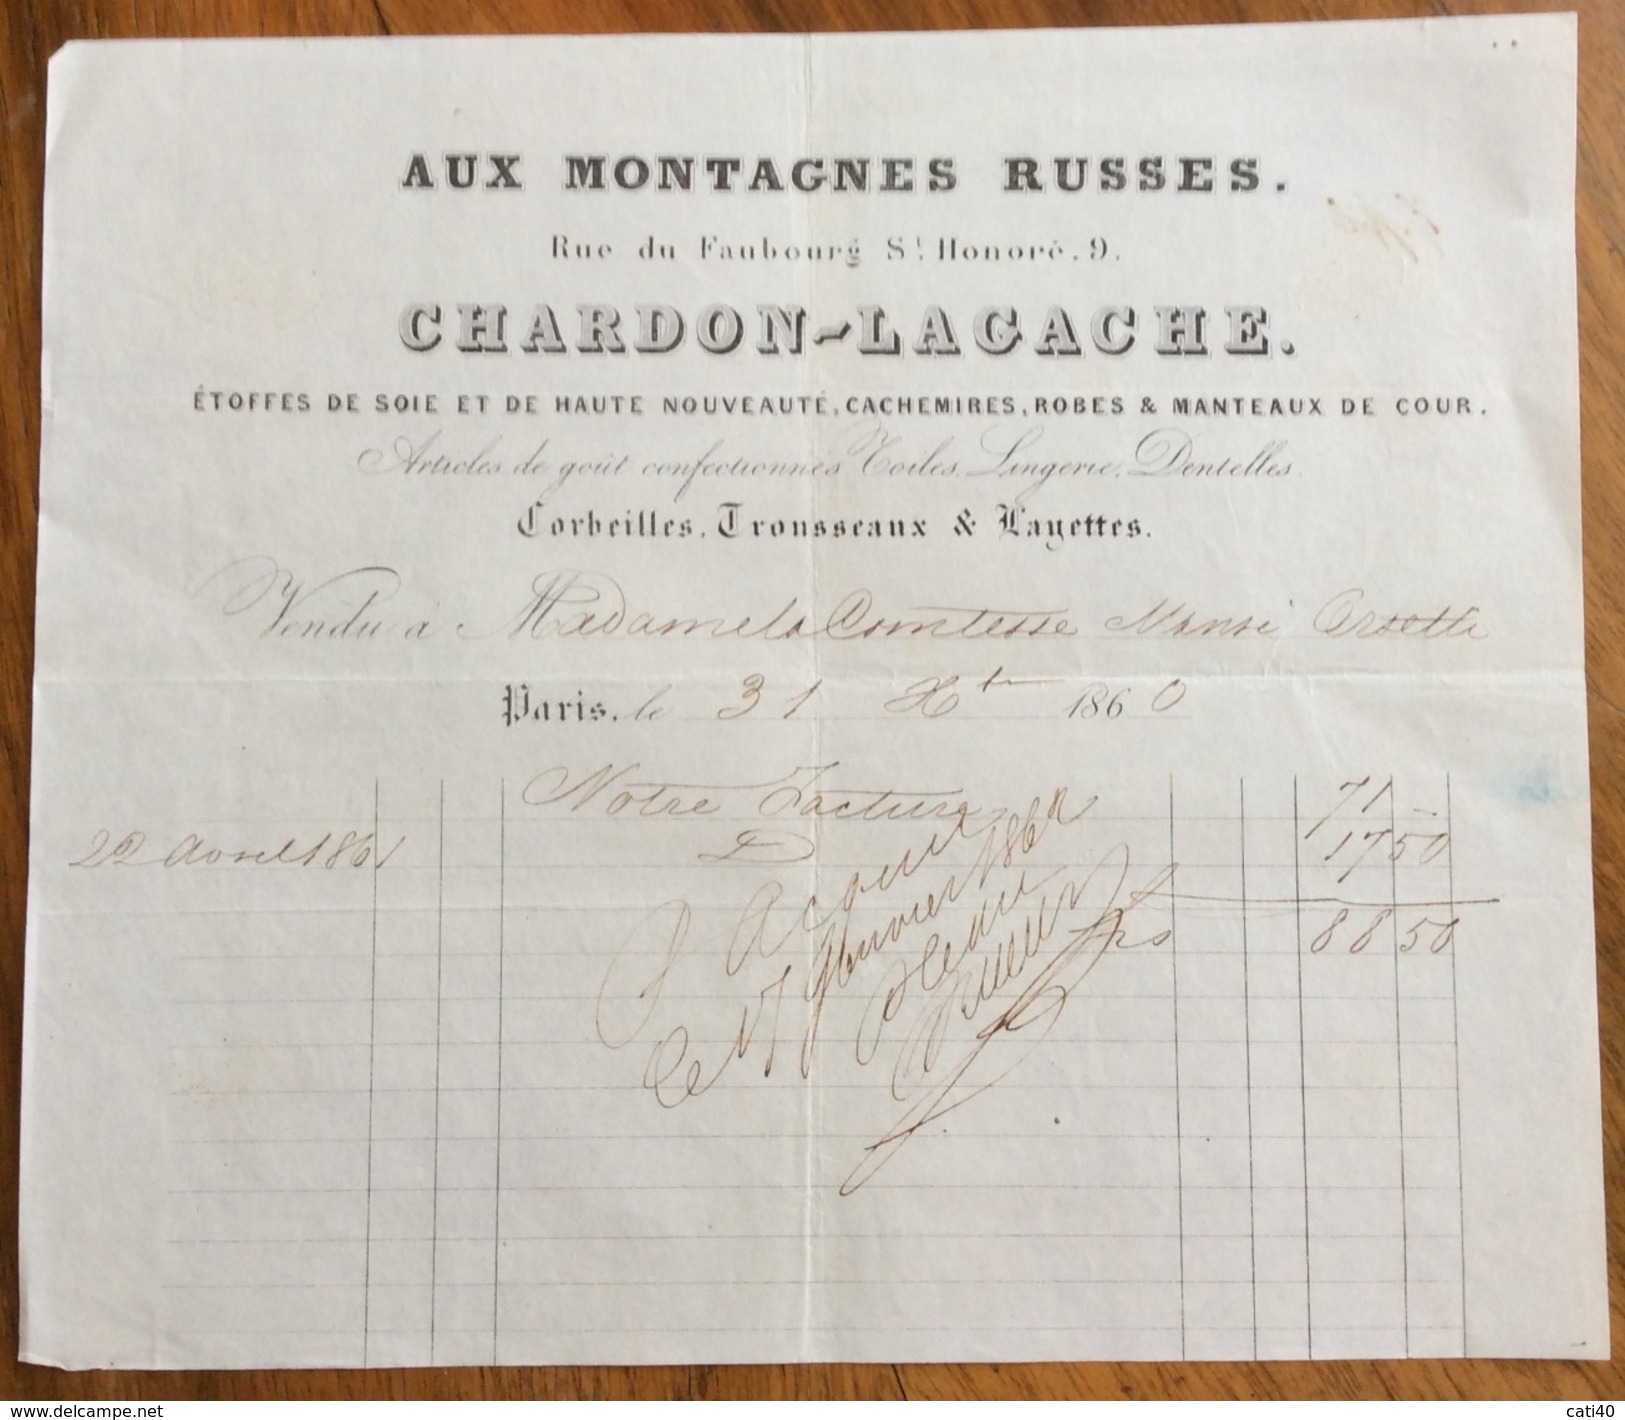 AUX MONTAGNES RUSSES.
Rue du Faubourg St. Honoré, 9.
CHARDON-LAGACHE.
ÉTOFFES DE SOIE ET DE HAUTE NOUVEAUTÉ, CACHEMIRES, ROBES & MANTEAUX DE COUR.
Articles de goût confectionnés Toiles, Lingerie, Dentelles.
Corbeilles, Trousseaux & Layettes.
Vendu à Madame la Comtesse Orsetti
Paris, le 31 Xbre 1860
Notre Facture 71 –
22 Avril 1861 D 17 50
frs 88 50
P Acquit
Ce 17 Janvier 1862
www.delcampe.net
cati40